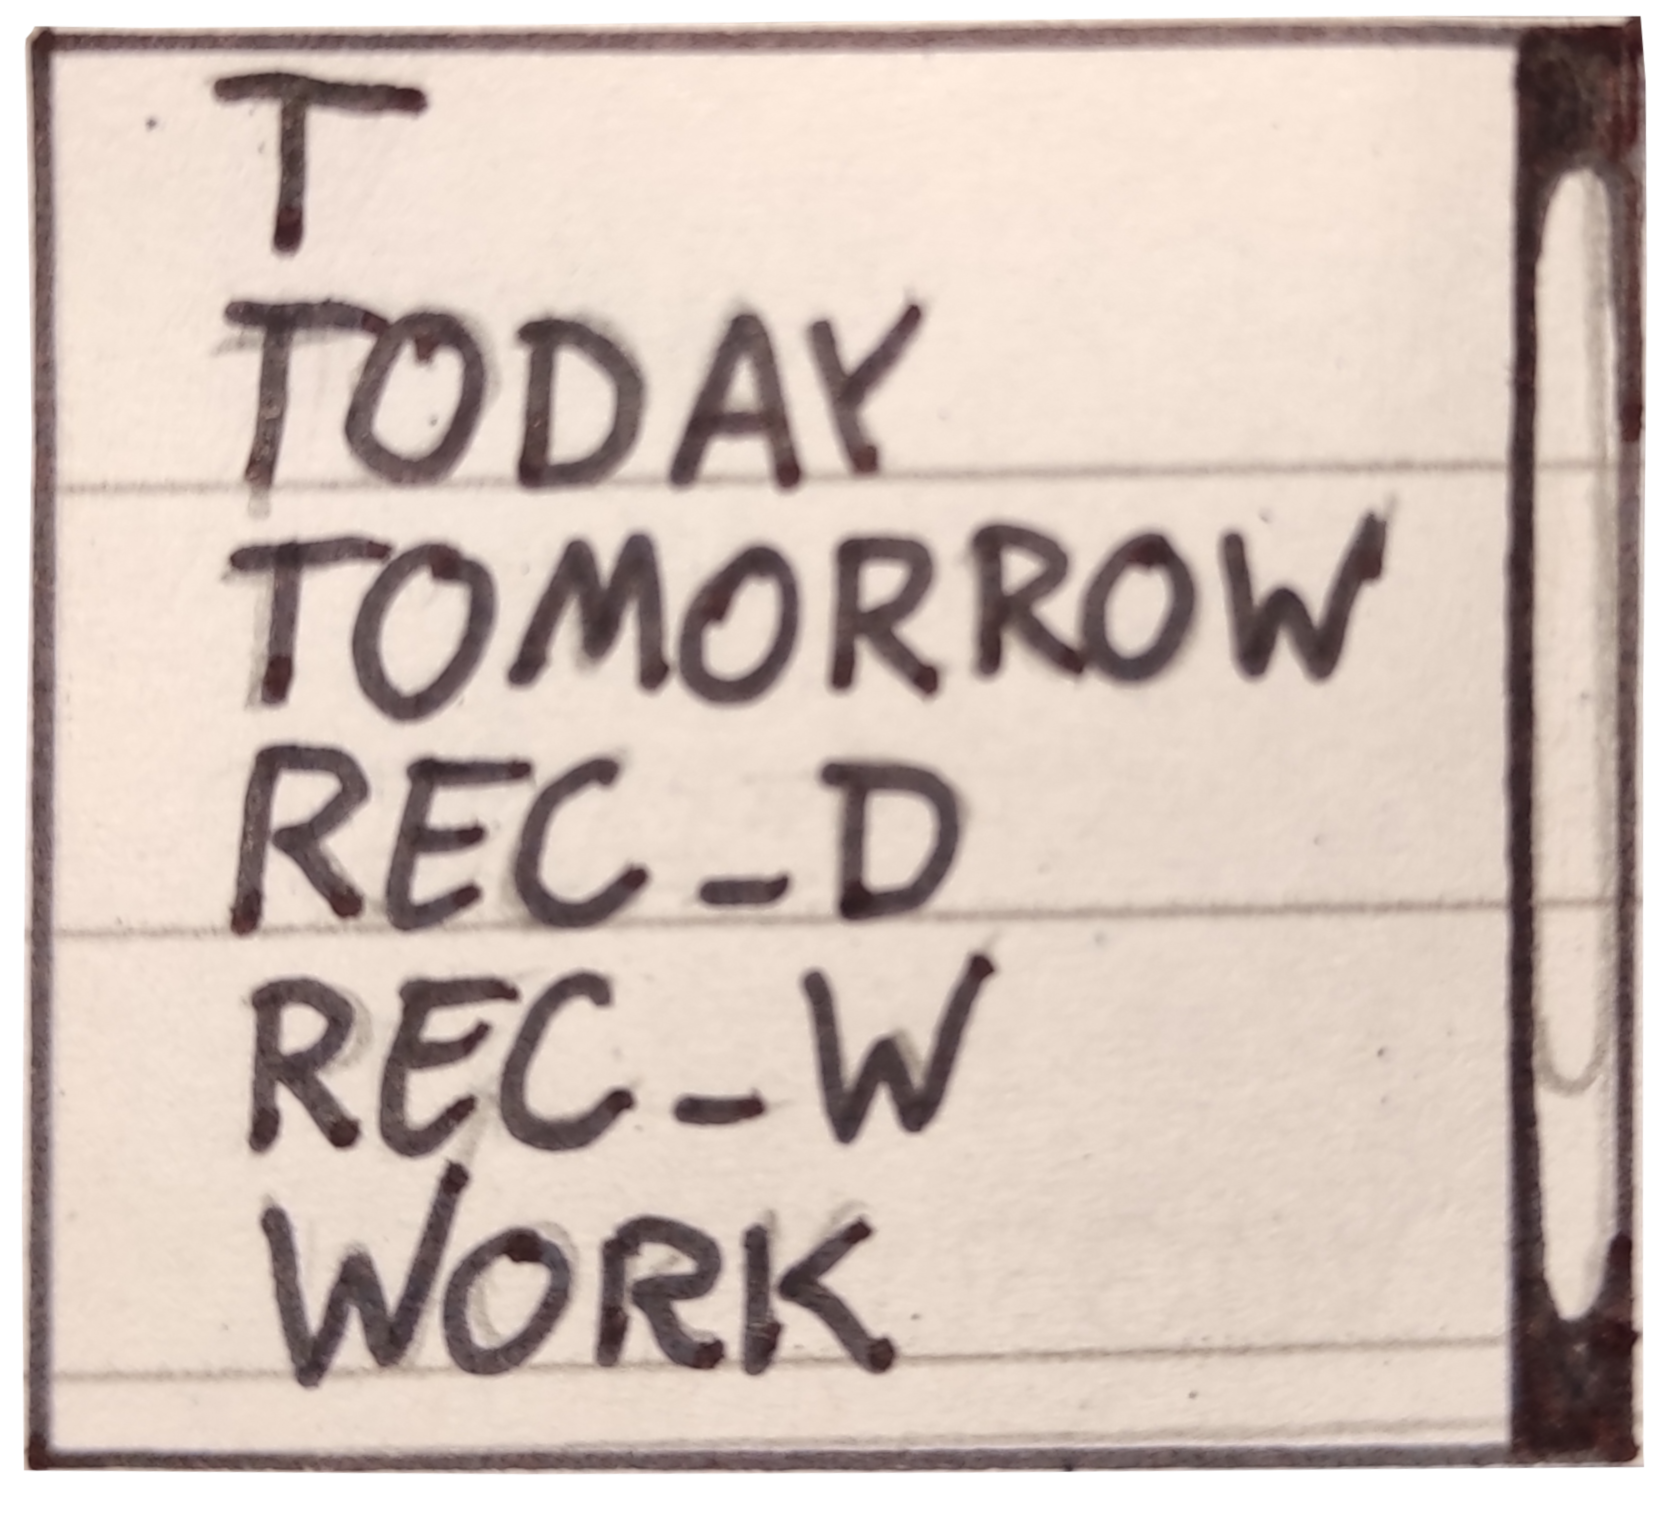 T
TODAY
TOMORROW
REC_D
REC_W
WORK